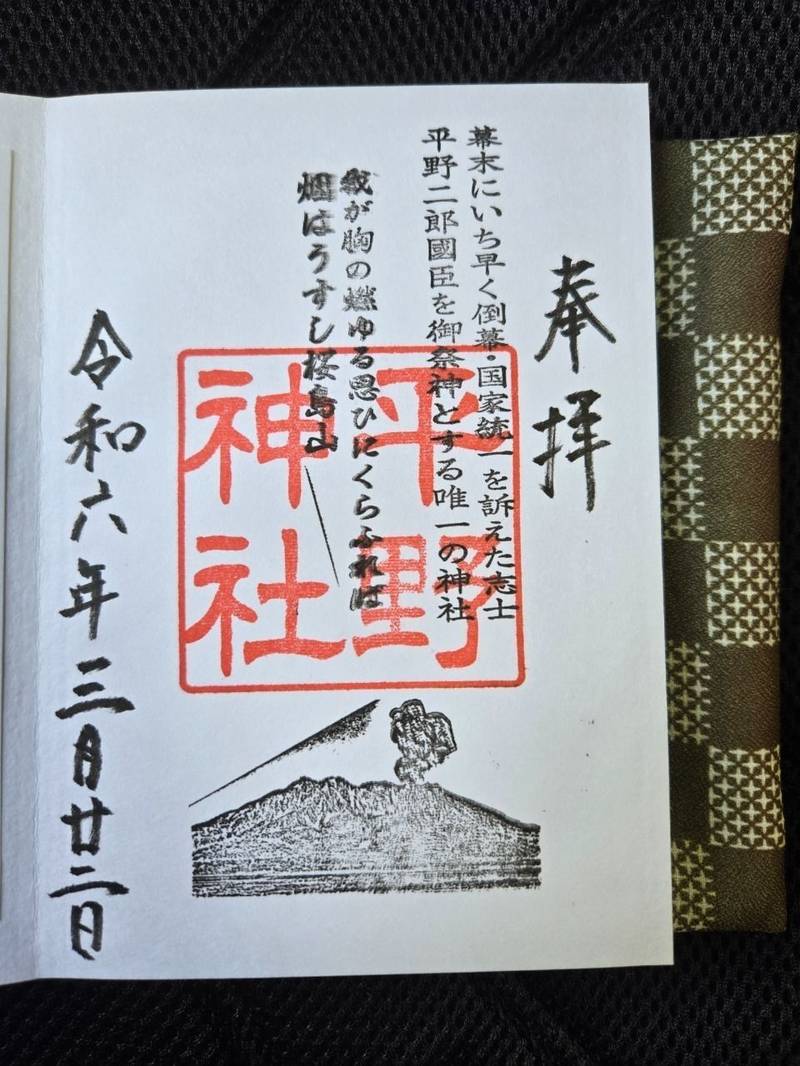 奉拝
幕末にいち早く倒幕・国家統一を訴えた志士
平野二郎國臣を御祭神とする唯一の神社
我が胸の燃ゆる思ひにくらふれは
烟はうすし桜島山
平野
神社
令和六年三月廿二日